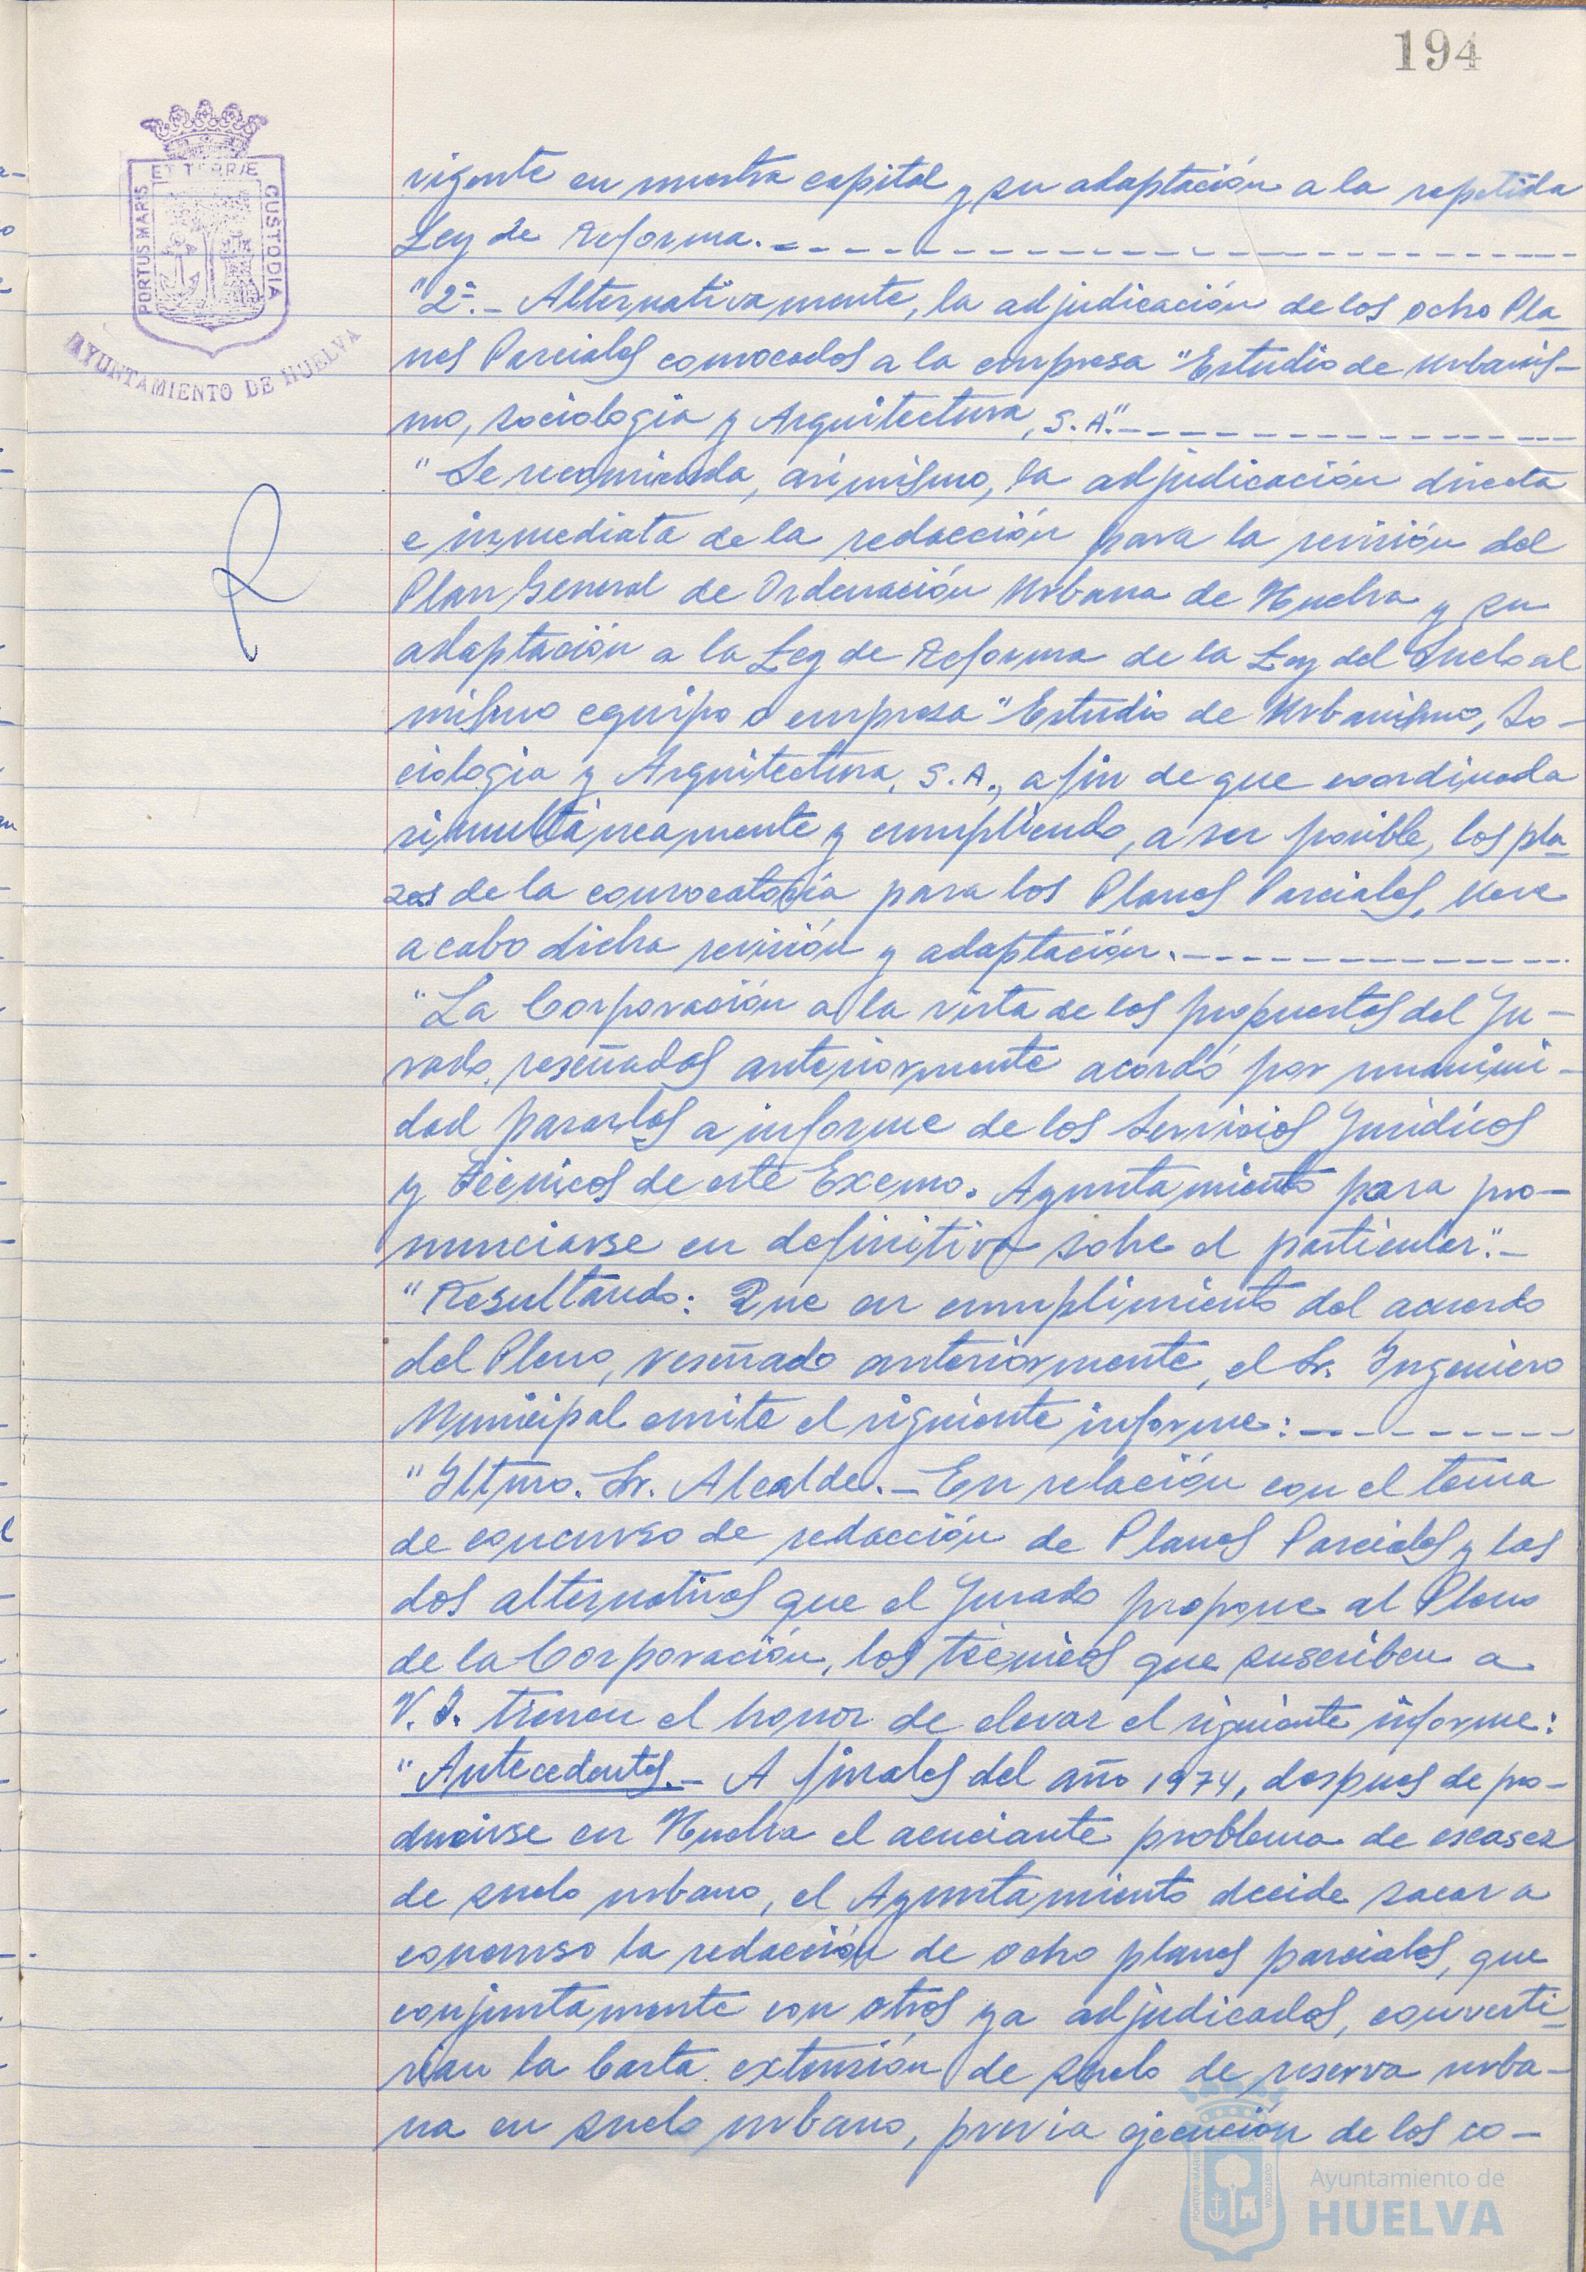 194
ET TERRÆ
PORTUS MARIS
CUSTODIA
AYUNTAMIENTO DE HUELVA
vigente en nuestra capital y su adaptación a la repetida
Ley de Reforma.
"2º.- Alternativamente, la adjudicación de los ocho Pla-
nes Parciales convocados a la empresa "Estudio de Urbanis-
mo, sociologia y Arquitectura, S.A."
"Se recomienda, asimismo, la adjudicación directa
e inmediata de la redacción para la revisión del
Plan General de Ordenación Urbana de Huelva y su
adaptación a la Ley de Reforma de la Ley del Suelo al
mismo equipo o empresa "Estudio de Urbanismo, So-
ciologia y Arquitectura, S.A., a fin de que coordinada
simultáneamente y cumpliendo, a ser posible, los pla-
zos de la convocatoria para los Planes Parciales, lleve
a cabo dicha revisión y adaptación.
"La Corporación a la vista de las propuestas del Ju-
rado, reseñadas anteriormente acordó por unanimi-
dad pasarlas a informe de los Servicios Juridicos
y Técnicos de este Excmo. Ayuntamiento para pro-
nunciarse en definitiva sobre el particular".-
"Resultando: Que en cumplimiento del acuerdo
del Pleno, reseñado anteriormente, el Sr. Ingeniero
Municipal emite el siguiente informe:
"Iltmo. Sr. Alcalde.- En relación con el tema
de concurso de redacción de Planes Parciales y las
dos alternativas que el Jurado propone al Pleno
de la Corporación, los técnicos que suscriben a
V.I. tienen el honor de elevar el siguiente informe:
"Antecedentes.- A finales del año 1974, despues de pro-
ducirse en Huelva el acuciante problema de escasez
de suelo urbano, el Ayuntamiento decide sacar a
concurso la redacción de ocho planes parciales, que
conjuntamente con otros ya adjudicados, converti-
rian la basta extensión de suelo de reserva urba-
na en suelo urbano, previa ejecución de los co-
Ayuntamiento de
HUELVA